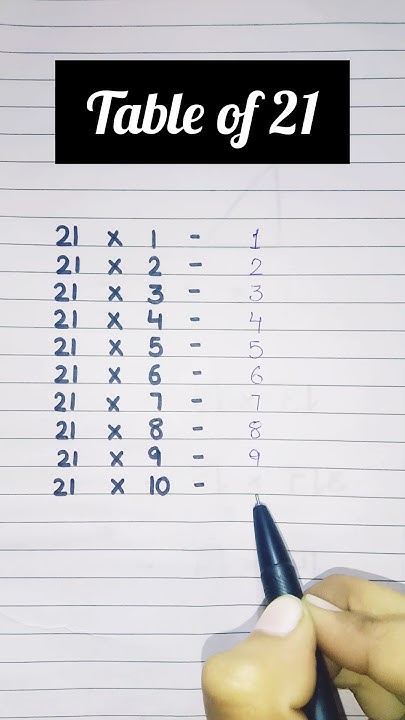 Table of 21
21 x 1 - 1
21 x 2 - 2
21 x 3 - 3
21 x 4 - 4
21 x 5 - 5
21 x 6 - 6
21 x 7 - 7
21 x 8 - 8
21 x 9 - 9
21 x 10 -